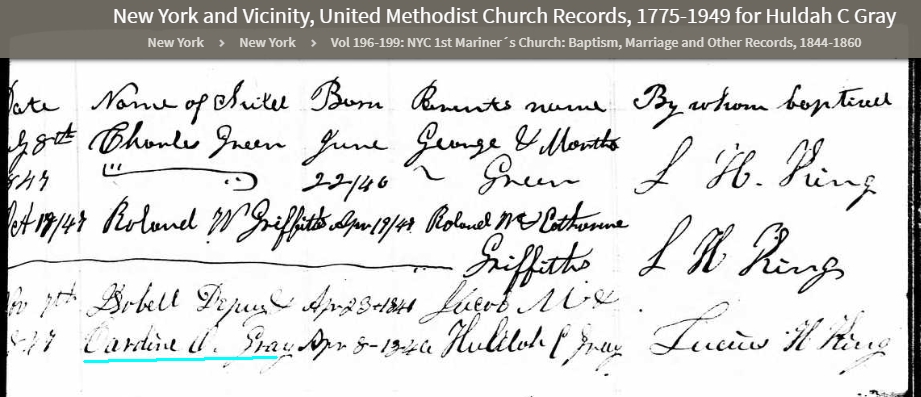 New York and Vicinity, United Methodist Church Records, 1775-1949 for Huldah C Gray
New York > New York > Vol 196-199: NYC 1st Mariner´s Church: Baptism, Marriage and Other Records, 1844-1860
Date Name of Born Parents name By whom baptised
8th Charles Green June George & Martha
22/46 Green L H. King
Roland W Griffiths Apr 19/47 Roland W & Catharine
Griffiths L H King
7th Apr 23-1841 Jacob M &
Caroline A. Gray Apr 8- Huldah C Gray Lucius H King